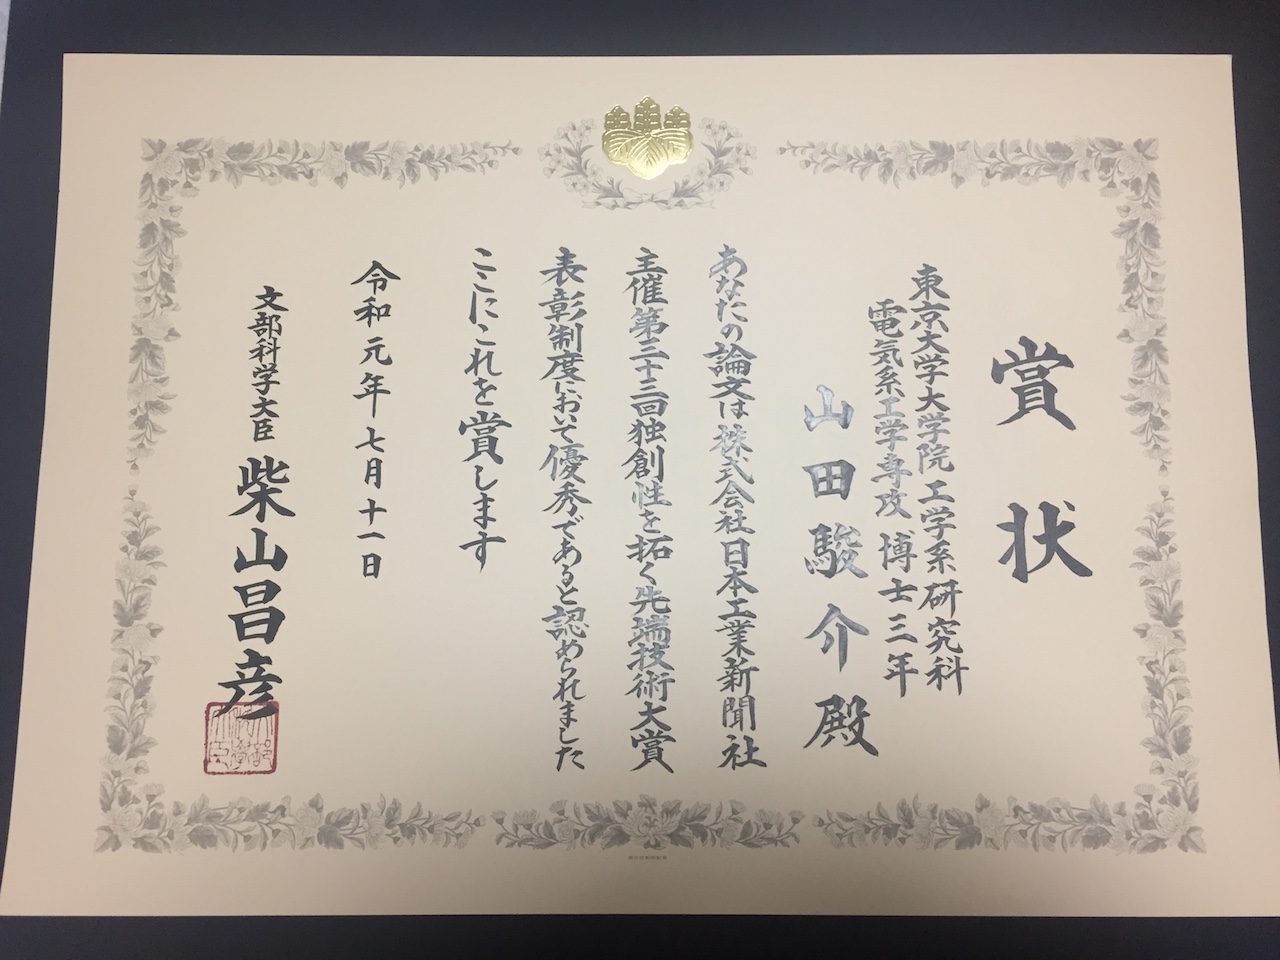 賞状
東京大学大学院工学系研究科
電気系工学専攻 博士三年
山田駿介殿
あなたの論文は株式会社日本工業新聞社
主催第三十三回独創性を拓く先端技術大賞
表彰制度において優秀であると認められました
ここにこれを賞します
令和元年七月十一日
文部科学大臣 柴山昌彦